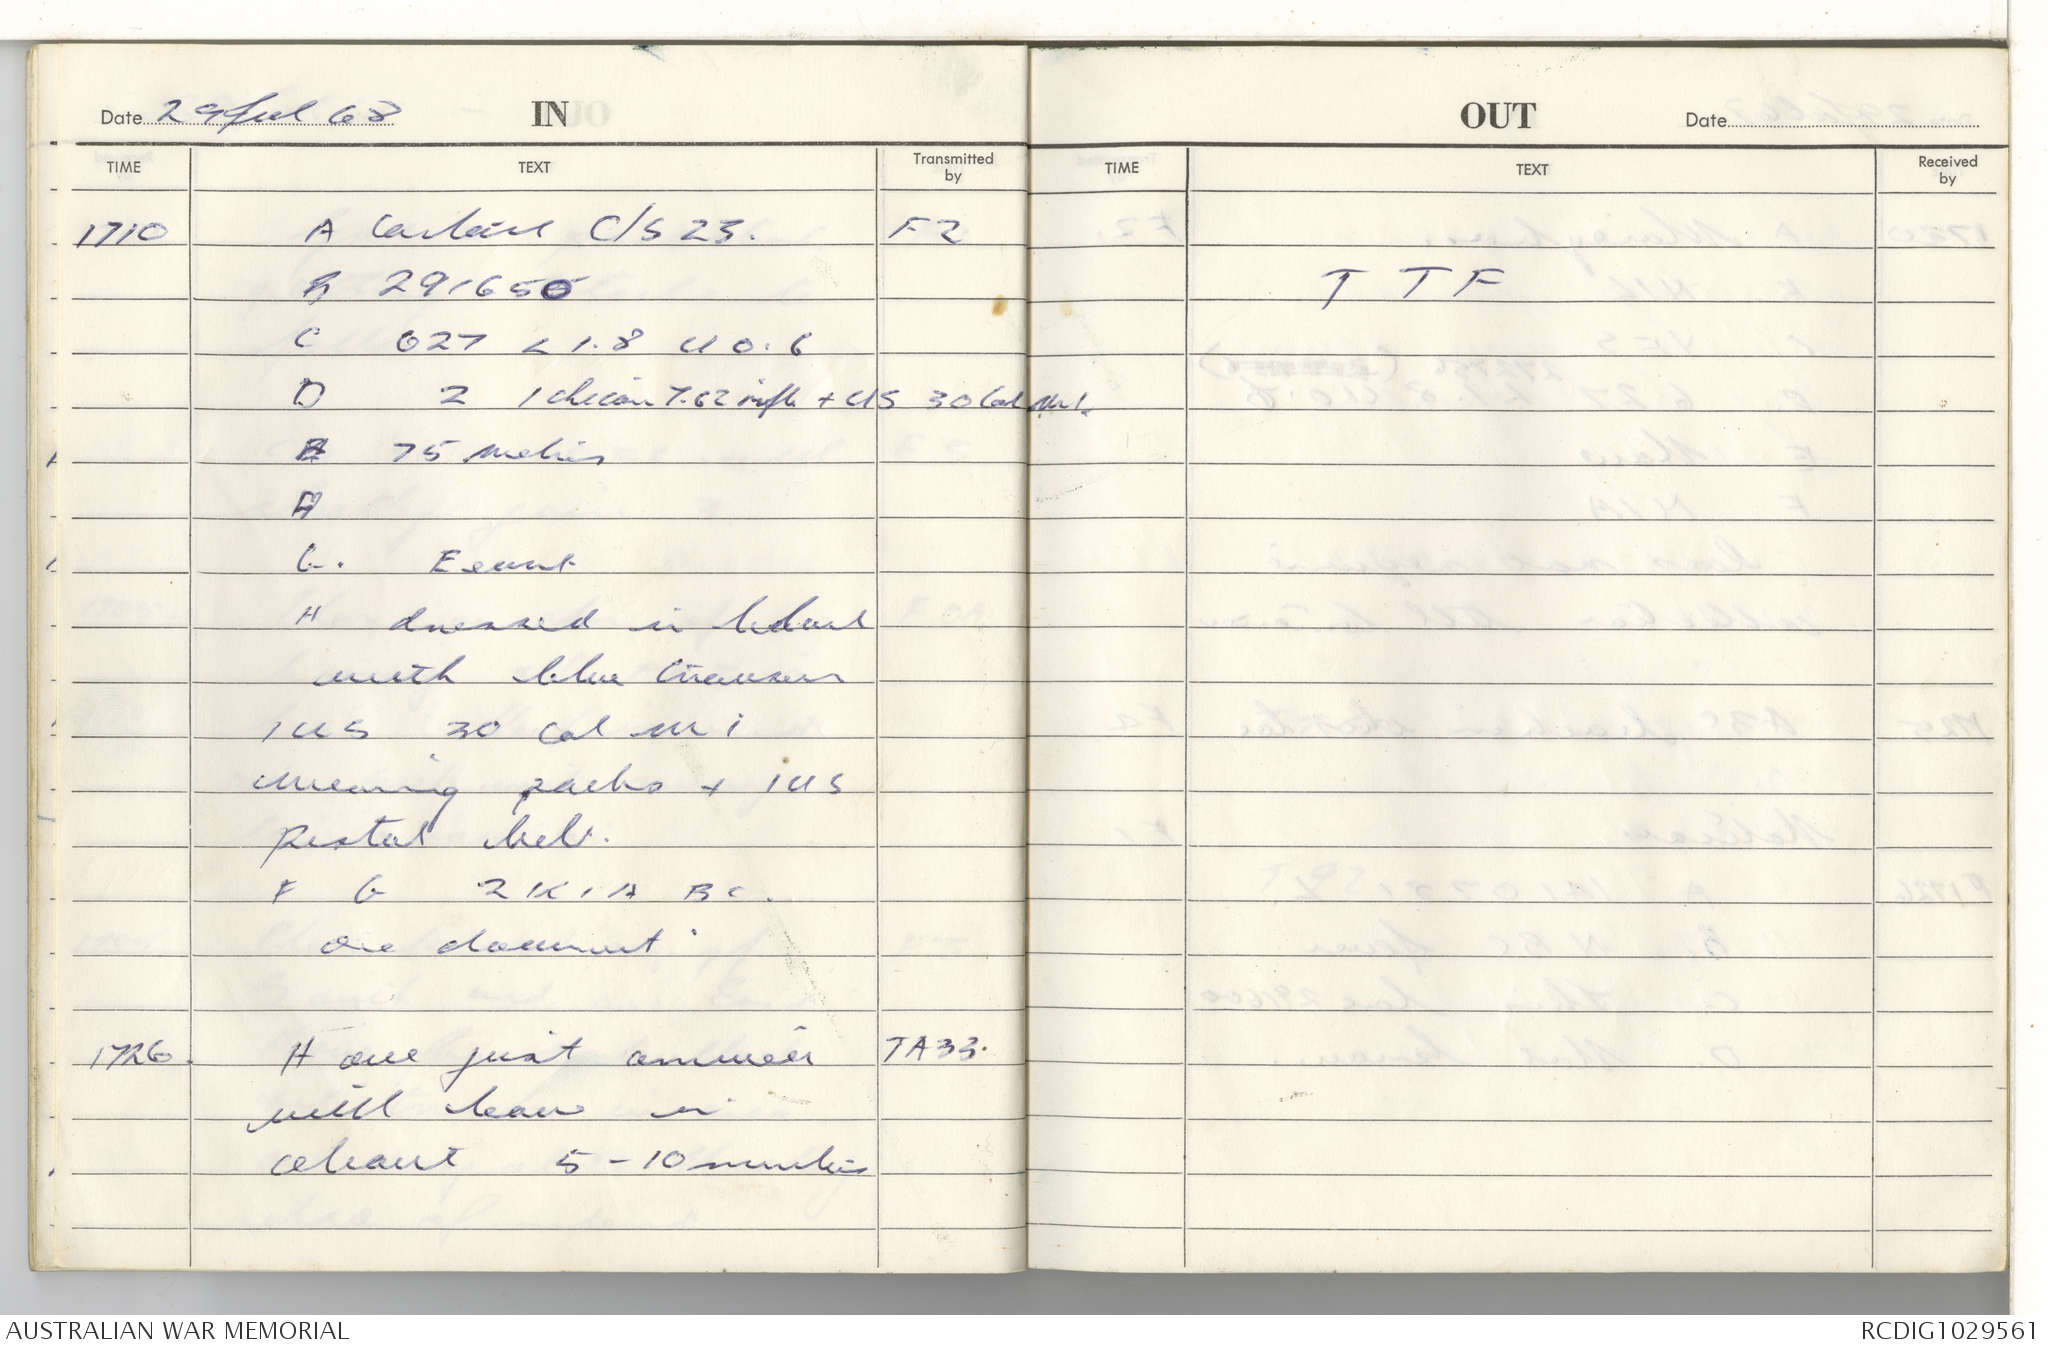 Date 29 Jul 68 IN
TIME TEXT Transmitted by
1710 A Contact C/S 23. F2
B 291650
C 027 L 1.8 U 0.6
D 2 1 Chicom 7.62 rifle + US 30 Cal M1.
E 75 Metres
G.
H dressed in black
with blue trousers
1 US 30 Cal M1
wearing packs + 1 US
Pistol belt.
F G 2 KIA BC.
one document
1726. H one just
will leave in
about 5-10 minutes
TA33.
OUT Date
TIME TEXT Received by
T T F
AUSTRALIAN WAR MEMORIAL
RCDIG1029561